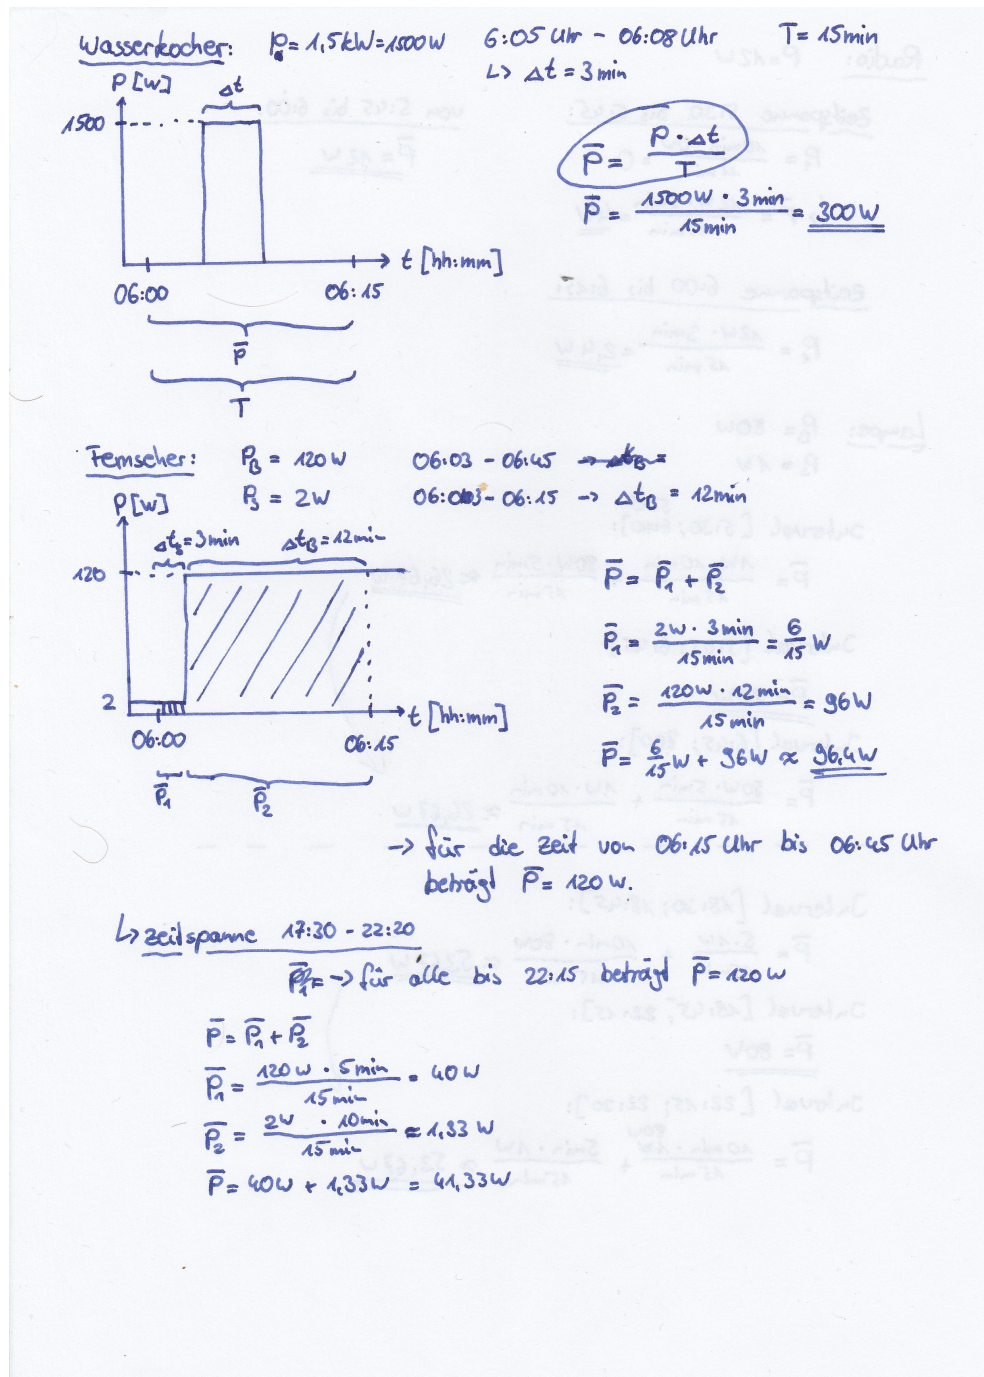 Wasserkocher: P = 1,5kW = 1500W 6:05 Uhr - 06:08 Uhr T = 15min
↳ Δt = 3min
P [W]
Δt
1500
P̄ = P · Δt / T
P̄ = 1500W · 3min / 15min = 300W
t [hh:mm]
06:00 06:15
P̄
T
Fernseher: P_B = 120W 06:03 - 06:45 → Δt_B =
P_S = 2W 06:03 - 06:15 → Δt_B = 12min
P [W]
Δt_S = 3min Δt_B = 12min
120
P̄ = P̄₁ + P̄₂
P̄₁ = 2W · 3min / 15min = 6/15 W
2
P̄₂ = 120W · 12min / 15min = 96W
t [hh:mm]
06:00 06:15
P̄ = 6/15 W + 96W ≈ 96,4W
P̄₁ P̄₂
→ für die Zeit von 06:15 Uhr bis 06:45 Uhr
beträgt P̄ = 120W.
↳ Zeitspanne 17:30 - 22:20
P̄₁ = → für alle bis 22:15 beträgt P̄ = 120W
P̄ = P̄₁ + P̄₂
P̄₁ = 120W · 5min / 15min = 40W
P̄₂ = 2W · 10min / 15min ≈ 1,33W
P̄ = 40W + 1,33W = 41,33W